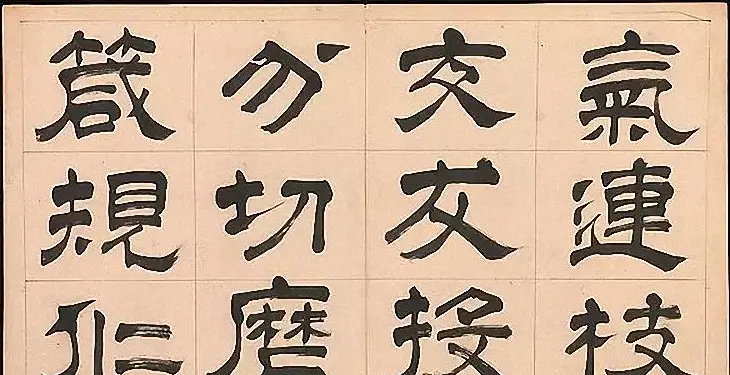 氣連枝
交友投
分切磨
箴規仁